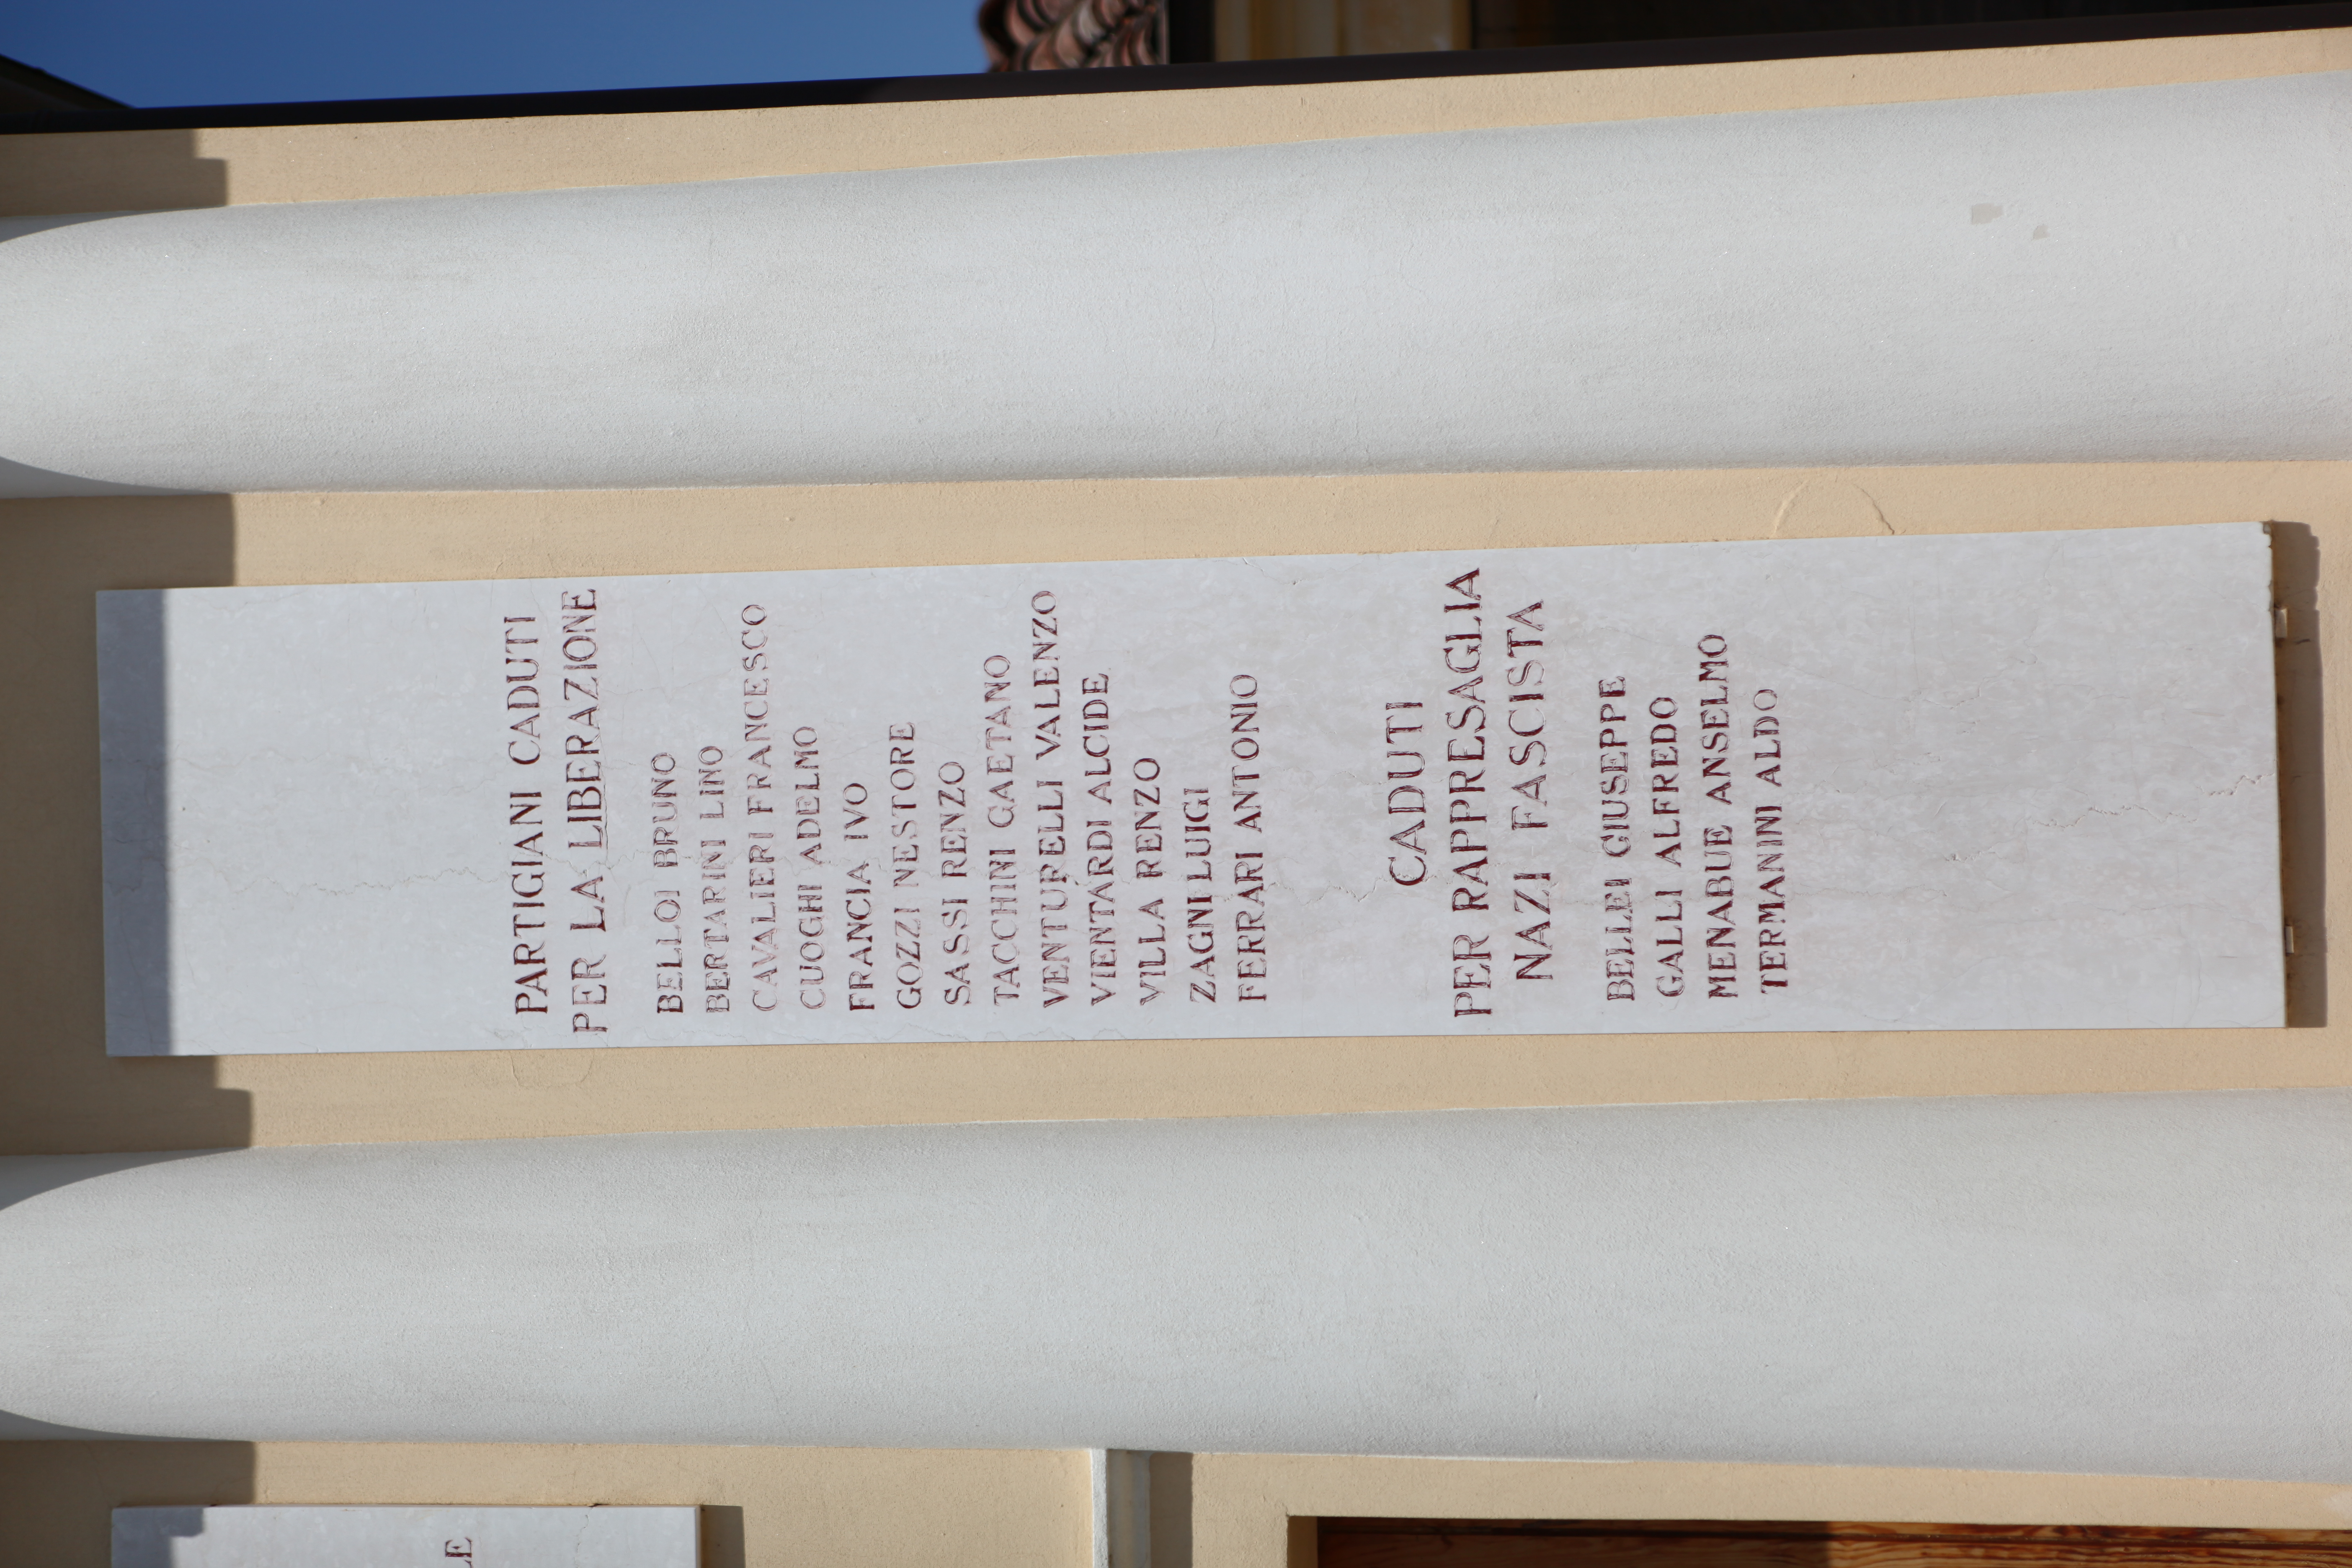 PARTIGIANI CADUTI
PER LA LIBERAZIONE
BELLOI BRUNO
BERTARINI LINO
CAVALIERI FRANCESCO
CUOGHI ADELMO
FRANCIA IVO
GOZZI NESTORE
SASSI RENZO
TACCHINI GAETANO
VENTURELLI VALENZO
VIENTARDI ALCIDE
VILLA RENZO
ZAGNI LUIGI
FERRARI ANTONIO
CADUTI
PER RAPPRESAGLIA
NAZI FASCISTA
BELLEI GIUSEPPE
GALLI ALFREDO
MENABUE ANSELMO
TERMANINI ALDO